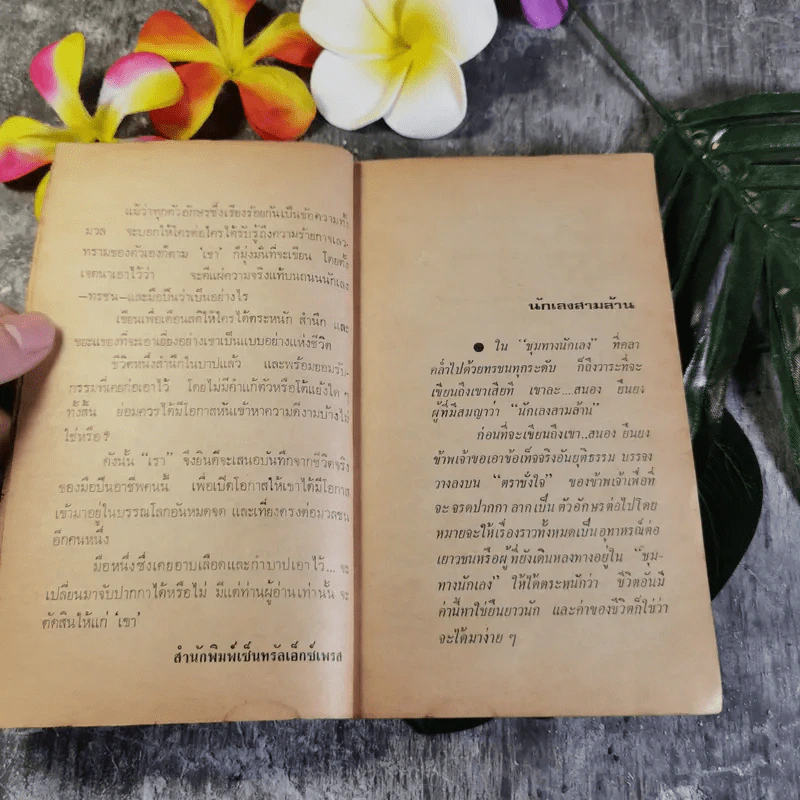 แม้ว่าทุกตัวอักษรซึ่งเรียงร้อยกันเป็นข้อความทั้ง
มวล จะบอกให้ใครต่อใครได้รับรู้ถึงความร้ายกาจเลว-
ทรามของตัวเองก็ตาม 'เขา' ก็มุ่งมั่นที่จะเขียน โดยตั้ง
เจตนาเอาไว้ว่า จะตีแผ่ความจริงแท้บนถนนนักเลง
–ทรชน–และมือปืนว่าเป็นอย่างไร
เขียนเพื่อเตือนสติให้ใครได้ตระหนัก สำนึก และ
ขยะแขยงที่จะเอาเยี่ยงอย่างเขาเป็นแบบอย่างแห่งชีวิต
ชีวิตหนึ่งสำนึกในบาปแล้ว และพร้อมยอมรับ-
กรรมที่เคยก่อเอาไว้ โดยไม่มีคำแก้ตัวหรือโต้แย้งใด ๆ
ทั้งสิ้น ย่อมควรได้มีโอกาสหันเข้าหาความดีงามบ้างไม่
ใช่หรือ?
ดังนั้น "เรา" จึงยินดีจะเสนอบันทึกจากชีวิตจริง
ของมือปืนอาชีพคนนี้ เพื่อเปิดโอกาสให้เขาได้มีโอกาส
เข้ามาอยู่ในบรรณโลกอันหมดจด และเที่ยงตรงต่อมวลชน
อีกคนหนึ่ง
มือหนึ่งซึ่งเคยอาบเลือดและกำบาปเอาไว้... จะ
เปลี่ยนมาจับปากกาได้หรือไม่ มีแต่ท่านผู้อ่านเท่านั้น จะ
ตัดสินให้แก่ 'เขา'
สำนักพิมพ์เซ็นทรัลเอ็กซ์เพรส
นักเลงสามล้าน
● ใน "ชุมทางนักเลง" ที่คลา
คล่ำไปด้วยทรชนทุกระดับ ก็ถึงวาระที่จะ
เขียนถึงเขาเสียที เขาละ....สนอง ยืนยง
ผู้ที่มีสมญาว่า "นักเลงสามล้าน"
ก่อนที่จะเขียนถึงเขา..สนอง ยืนยง
ข้าพเจ้าขอเอาข้อเท็จจริงอันยุติธรรม บรรจง
วางลงบน "ตราชั่งใจ" ของข้าพเจ้าเพื่อที่
จะจรดปากกา ลากเป็นตัวอักษรต่อไปโดย
หมายจะให้เรื่องราวทั้งหมดเป็นอุทาหรณ์ต่อ
เยาวชนหรือผู้ที่ยังเดินหลงทางอยู่ใน "ชุม-
ทางนักเลง" ให้ได้ตระหนักว่า ชีวิตอันมี
ค่านี้หาใช่ยืนยาวนัก และค่าของชีวิตก็ใช่ว่า
จะได้มาง่าย ๆ